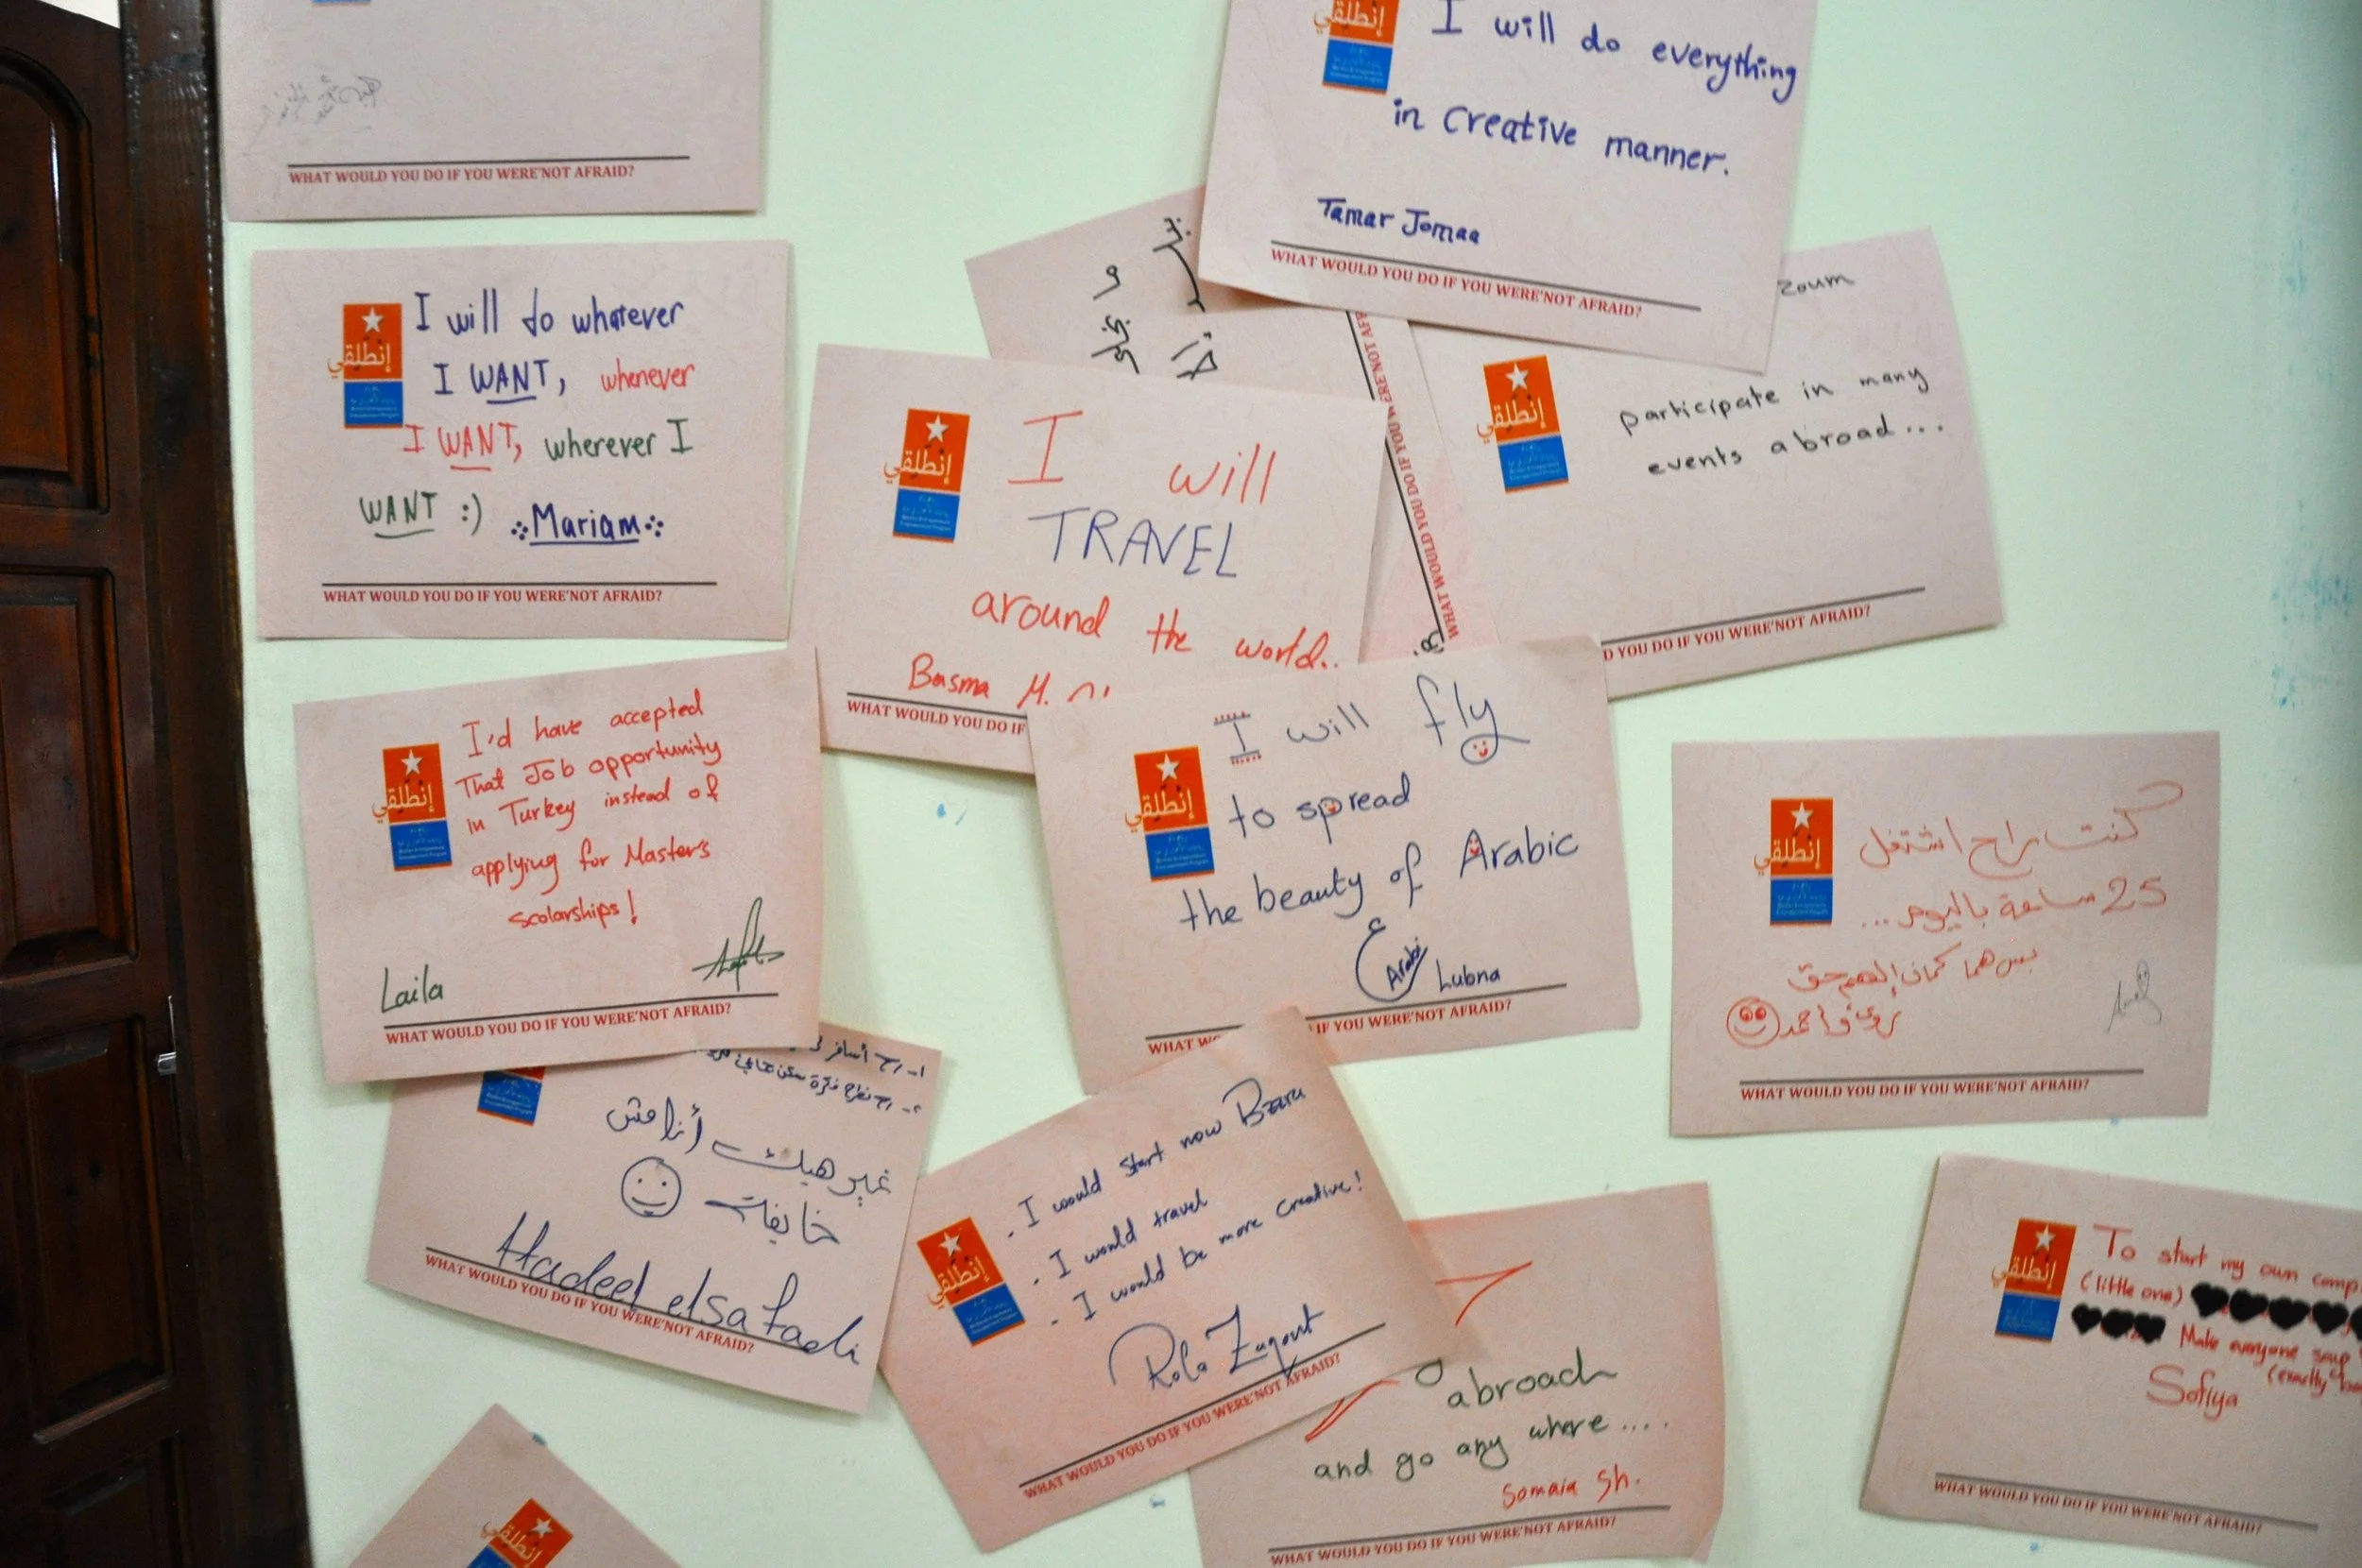 WHAT WOULD YOU DO IF YOU WERE'NOT AFRAID?
إنطلقي
I will do everything
in Creative manner.
Tamar Jomaa
WHAT WOULD YOU DO IF YOU WERE'NOT AFRAID?
إنطلقي
I will do whatever
I WANT, whenever
I WANT, wherever I
WANT :) Mariam
WHAT WOULD YOU DO IF YOU WERE'NOT AFRAID?
WHAT WOULD YOU DO IF YOU WERE'NOT AFR
zoum
إنطلقي
participate in many
events abroad...
D YOU DO IF YOU WERE'NOT AFRAID?
WHAT WOULD YOU
إنطلقي
I will
TRAVEL
around the world..
Basma M.
WHAT WOULD YOU DO IF
إنطلقي
I'd have accepted
That Job opportunity
in Turkey instead of
applying for Masters
scolarships!
Laila
WHAT WOULD YOU DO IF YOU WERE'NOT AFRAID?
إنطلقي
I will fly
to spread
the beauty of Arabic
Arabi Lubna
WHAT W
IF YOU WERE'NOT AFRAID?
إنطلقي
كنت راح اشتغل
25 ساعة باليوم...
بس هما كمان إلهم حق
WHAT WOULD YOU DO IF YOU WERE'NOT AFRAID?
١- رح أسافر
غير هيك أنا مش
خايفة
Hadeel elsafadi
WHAT WOULD YOU DO IF YOU WERE'NOT AFRAID?
إنطلقي
. I would start now
. I would travel
. I would be more creative!
Rola Zaqout
WHAT WOULD YOU DO IF YOU WERE'NOT AFRAID?
abroad
and go any where....
Somaia Sh.
WHAT WOULD YOU DO IF YOU WERE'NOT AFRAID?
إنطلقي
To start my own comp
(little one)
Make everyone
Sofiya
WHAT WOULD YOU DO IF YOU WERE'NOT AFRAID?
إنطلقي